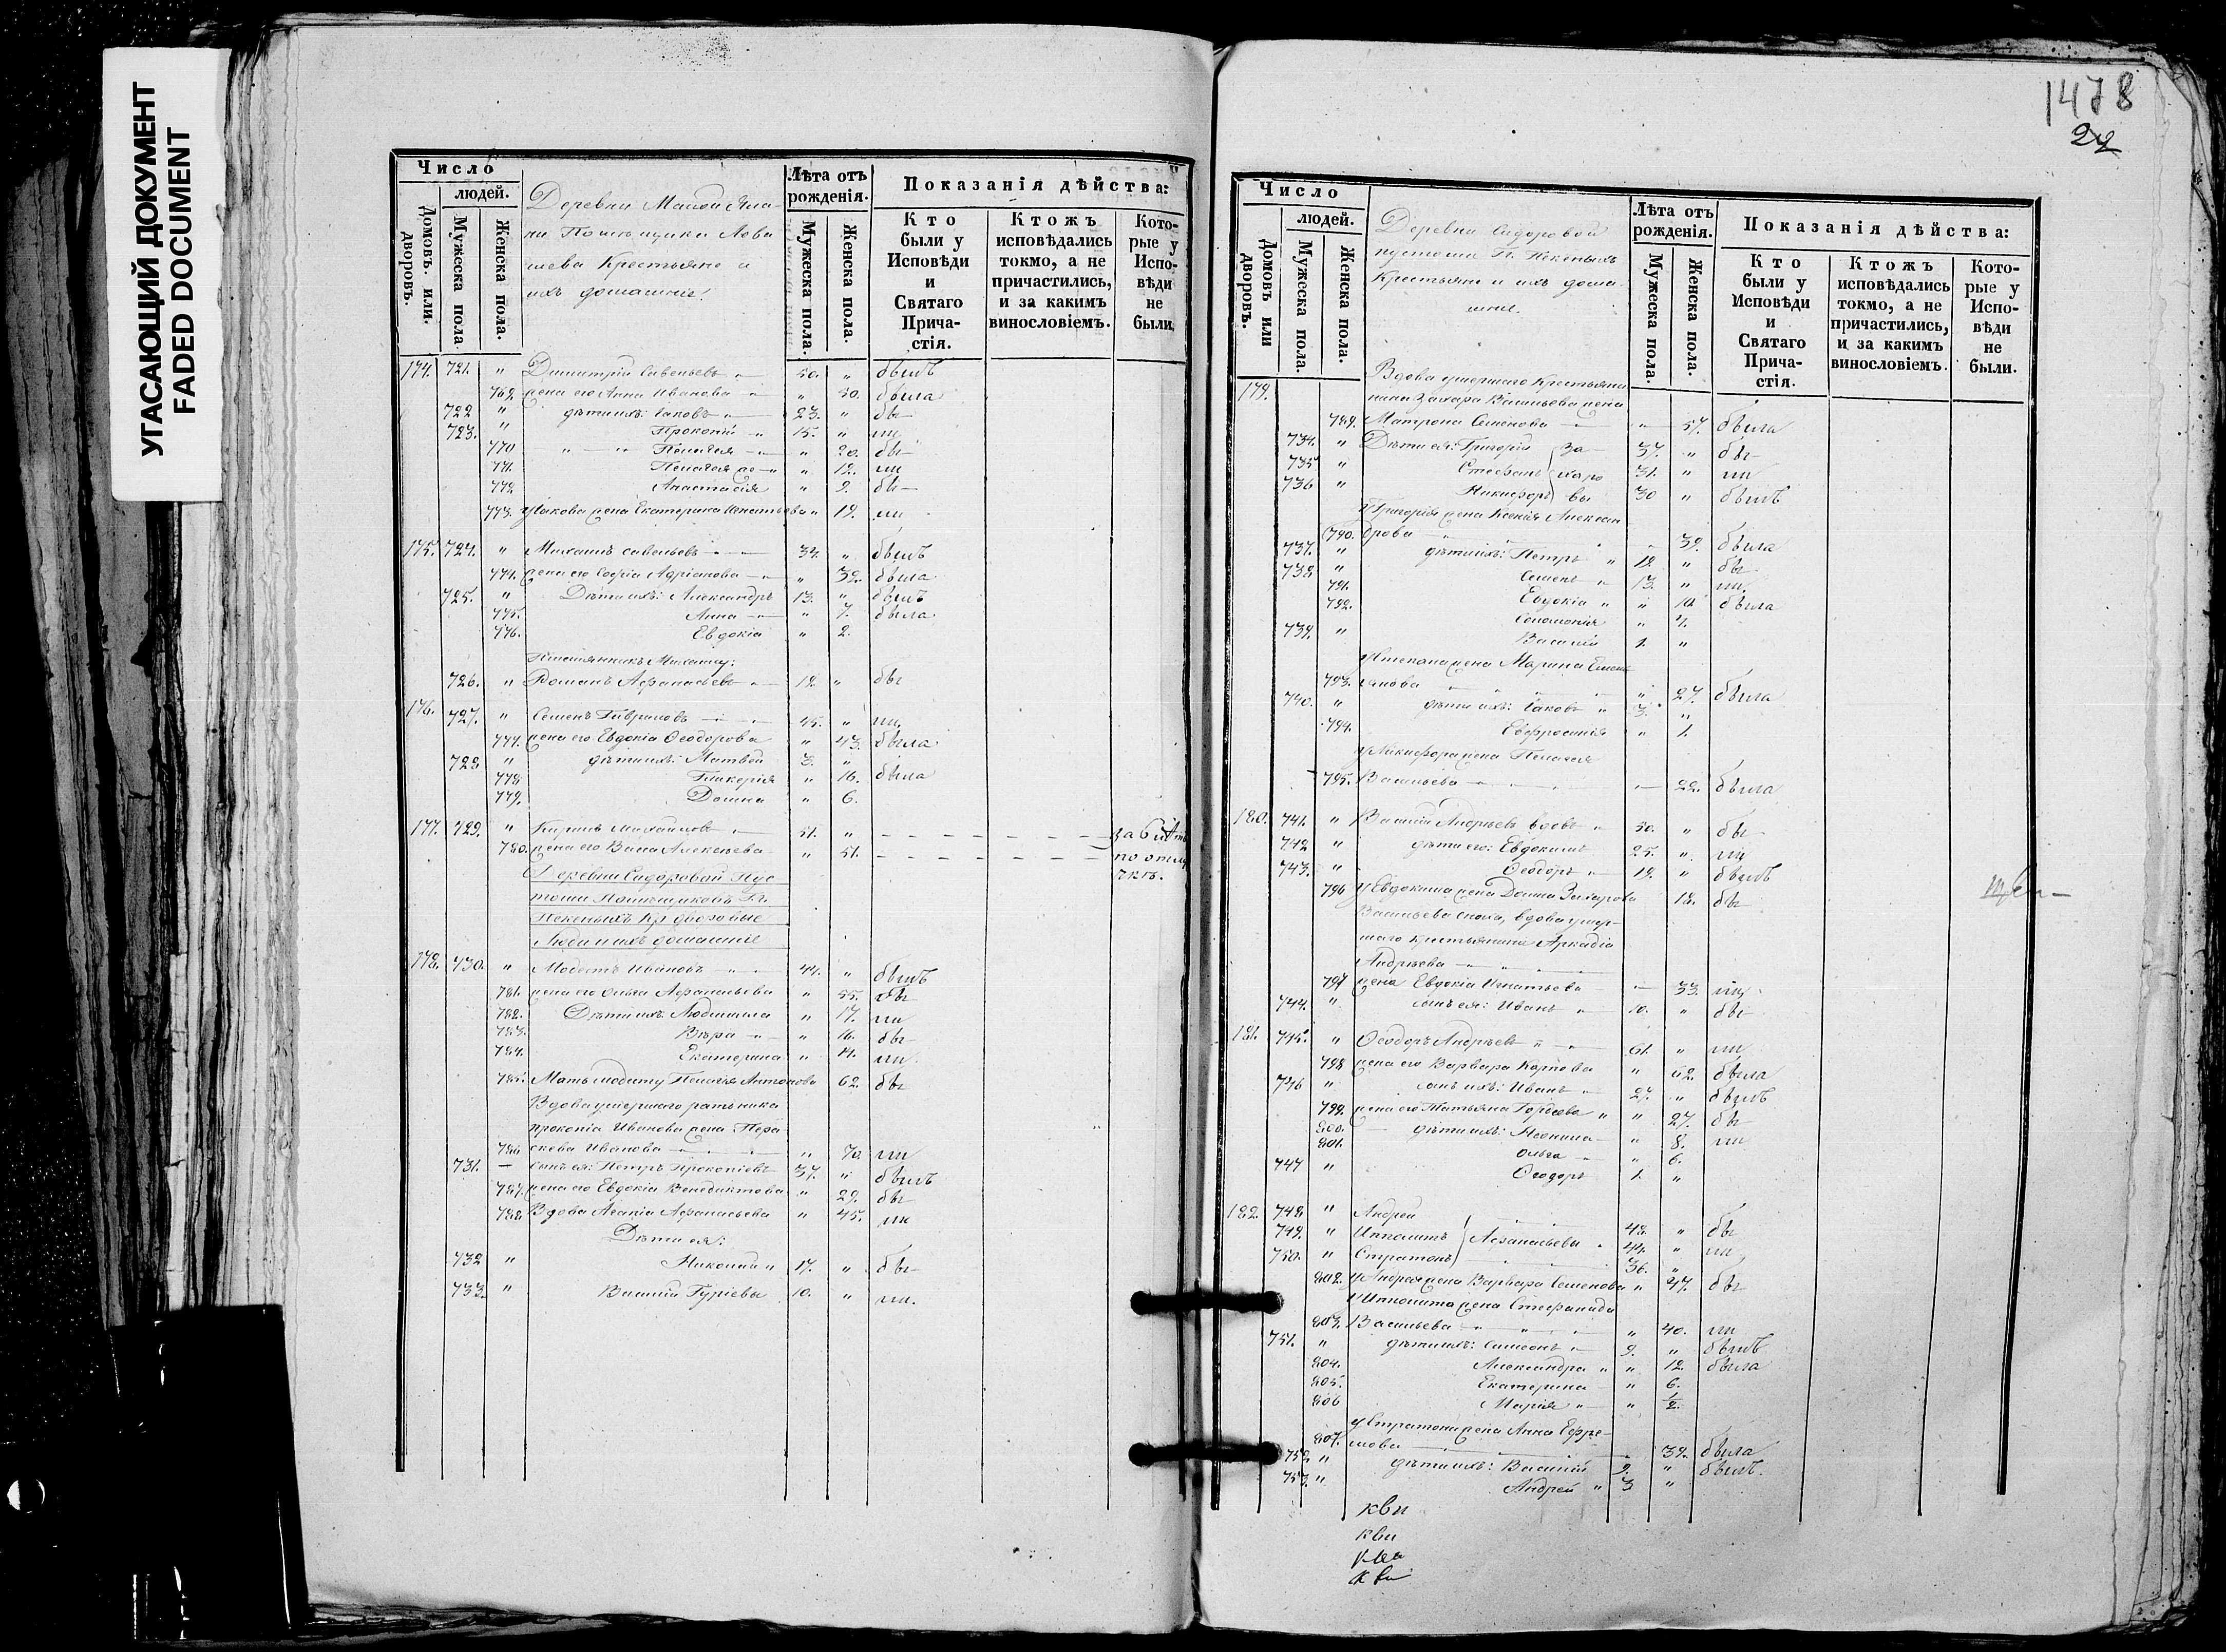 УГАСАЮЩИЙ ДОКУМЕНТ
FADED DOCUMENT
Число
людей.
Домовъ или. дворовъ.
Мужеска пола.
Женска пола.
Деревни Малой
ни Помѣщика
Крестьяне и
ихъ домашніе:
Лѣта отъ рожденія.
Мужеска пола.
Женска пола.
Показанія дѣйства:
Кто были у Исповѣди и Святаго Прича-стія.
Ктожъ исповѣдались токмо, а не причастились, и за какимъ винословіемъ.
Кото-рые у Испо-вѣди не были.
174. 721. " Димитрій Савельевъ 50. " былъ
769. жена его Анна Иванова " 50. была
722 " дѣти ихъ: Іаковъ 23. " бы
723. " Прокопій 15. "
770 Пелагея " 20. бы
771. Пелагея " 12.
772 Анастасія " 9. бы
773. у Іакова жена Екатерина Игнатьева " 19.
175. 724. " Михаилъ Савельевъ 34. " былъ
774. жена его Софія Адріанова " 32. была
725. " Дѣти ихъ: Александръ 13. " былъ
775. Анна " 7. была
776. Евдокія " 2.
Племянникъ Михаилу:
726. " Романъ Аѳанасьевъ 19. " бы
176. 727. " Семенъ Гавриловъ 45. "
777. жена его Евдокія Ѳеодорова " 43. была
728 " дѣти ихъ: Матвей 3. "
778 Гликерія " 16. была
779. Домна " 6.
177. 729. " Кирилъ Михайловъ 51. "
780. жена его Васса Алексѣева " 51. по отлу
чкѣ.
Деревни Сидоровой Пус
тоши Помѣщиковъ Гг.
дворовые
Люди и ихъ домашніе
178. 730. " Модестъ Ивановъ 44. " былъ
781. жена его Ольга Аѳанасьева " 55. бы
782. Дѣти ихъ: Людмила " 17.
783. Вѣра " 16. бы
784. Екатерина " 14.
785. Мать Модесту Пелагея Антонова 62. бы
Вдова умершаго ратника
Прокопія Иванова жена Пара
786 скева Иванова " 70.
731. сынъ ея: Петръ Прокопіевъ 37. " былъ
787. жена его Евдокія Венедиктова " 29. бы
788 Вдова Агапія Аѳанасьева " 45.
Дѣти ея:
732 " Николай 17. " бы
733. " Василій Гуріевы 10. "
1478
Число
людей.
Домовъ или дворовъ.
Мужеска пола.
Женска пола.
Деревни Сидоровой
пустоши Гг.
Крестьяне и ихъ дома
шніе.
Лѣта отъ рожденія.
Мужеска пола.
Женска пола.
Показанія дѣйства:
Кто были у Исповѣди и Святаго Прича-стія.
Ктожъ исповѣдались токмо, а не причастились, и за какимъ винословіемъ.
Кото-рые у Испо-вѣди не были.
179. Вдова умершаго Крестьяни
нина Захара Васильева жена
789. Матрона Семенова 57. была
734. " Дѣти ея: Григорій За 37. " бы
735 " Стефанъ харо 31. "
736 " Никифоръ вы 30 " былъ
у Григорія жена Ксенія Алексан
790. дрова 39. была
737. " дѣти ихъ: Петръ " 19 " бы
738 " Семенъ 13. "
791. Евдокія " " 10. была
792. Соломонія " 4.
739. " Василій 1. "
у Степана жена Марина Емель
793. янова " 27. была
740. " дѣти ихъ: Іаковъ " 3. "
794. Евфросинія " 1.
у Никифора жена Пелагея
795. Васильева 22. была
180. 741. " Василій Андреевъ вдовъ 50. " бы
742 " дѣти его: Евдокимъ 25. "
743. " Ѳеодоръ 19. " былъ
796 у Евдокима жена Домна Захарова 18. бы
Васильева сноха, вдова умер
шаго крестьянина Аркадія
Андреева
797 жена Евдокія Игнатьева 33.
744. " сынъ ея: Иванъ 10. " бы
181. 745. " Ѳеодоръ Андреевъ 61. "
798 жена его Варвара Карпова " 62. была
746 " сынъ ихъ: Иванъ 27. " былъ
799. жена его Татьяна Гордеева " 27. бы
800. дѣти ихъ: Неонила " 8.
801. Ольга " 6.
747 " Ѳеодоръ 1. "
182. 748. " Андрей 48. " бы
749. " Ипполитъ Аѳанасьевы 44. "
750. " Стратонъ 36. "
802. у Андрея жена Варвара Семенова " 47. бы
у Ипполита жена Стефанида
803. Васильева " 40.
751. " дѣти ихъ: Симеонъ 9. " былъ
804. Александра " 12. была
805. Екатерина " 6.
806 Марія " 1/2.
у Стратона жена Анна Ефре
807. мова 39. была
752. " дѣти ихъ: Василій 9. " былъ.
753. " Андрей " 3 "